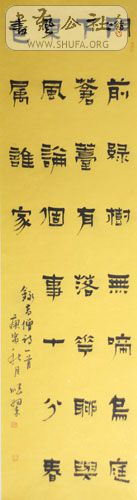 书艺公社
WWW.SHUFA.ORG
門前綠樹無啼鳥庭
下蒼薹有落華聊與
東風論個事十分春
色屬誰家
錄古僧詩一首
庚寅秋月